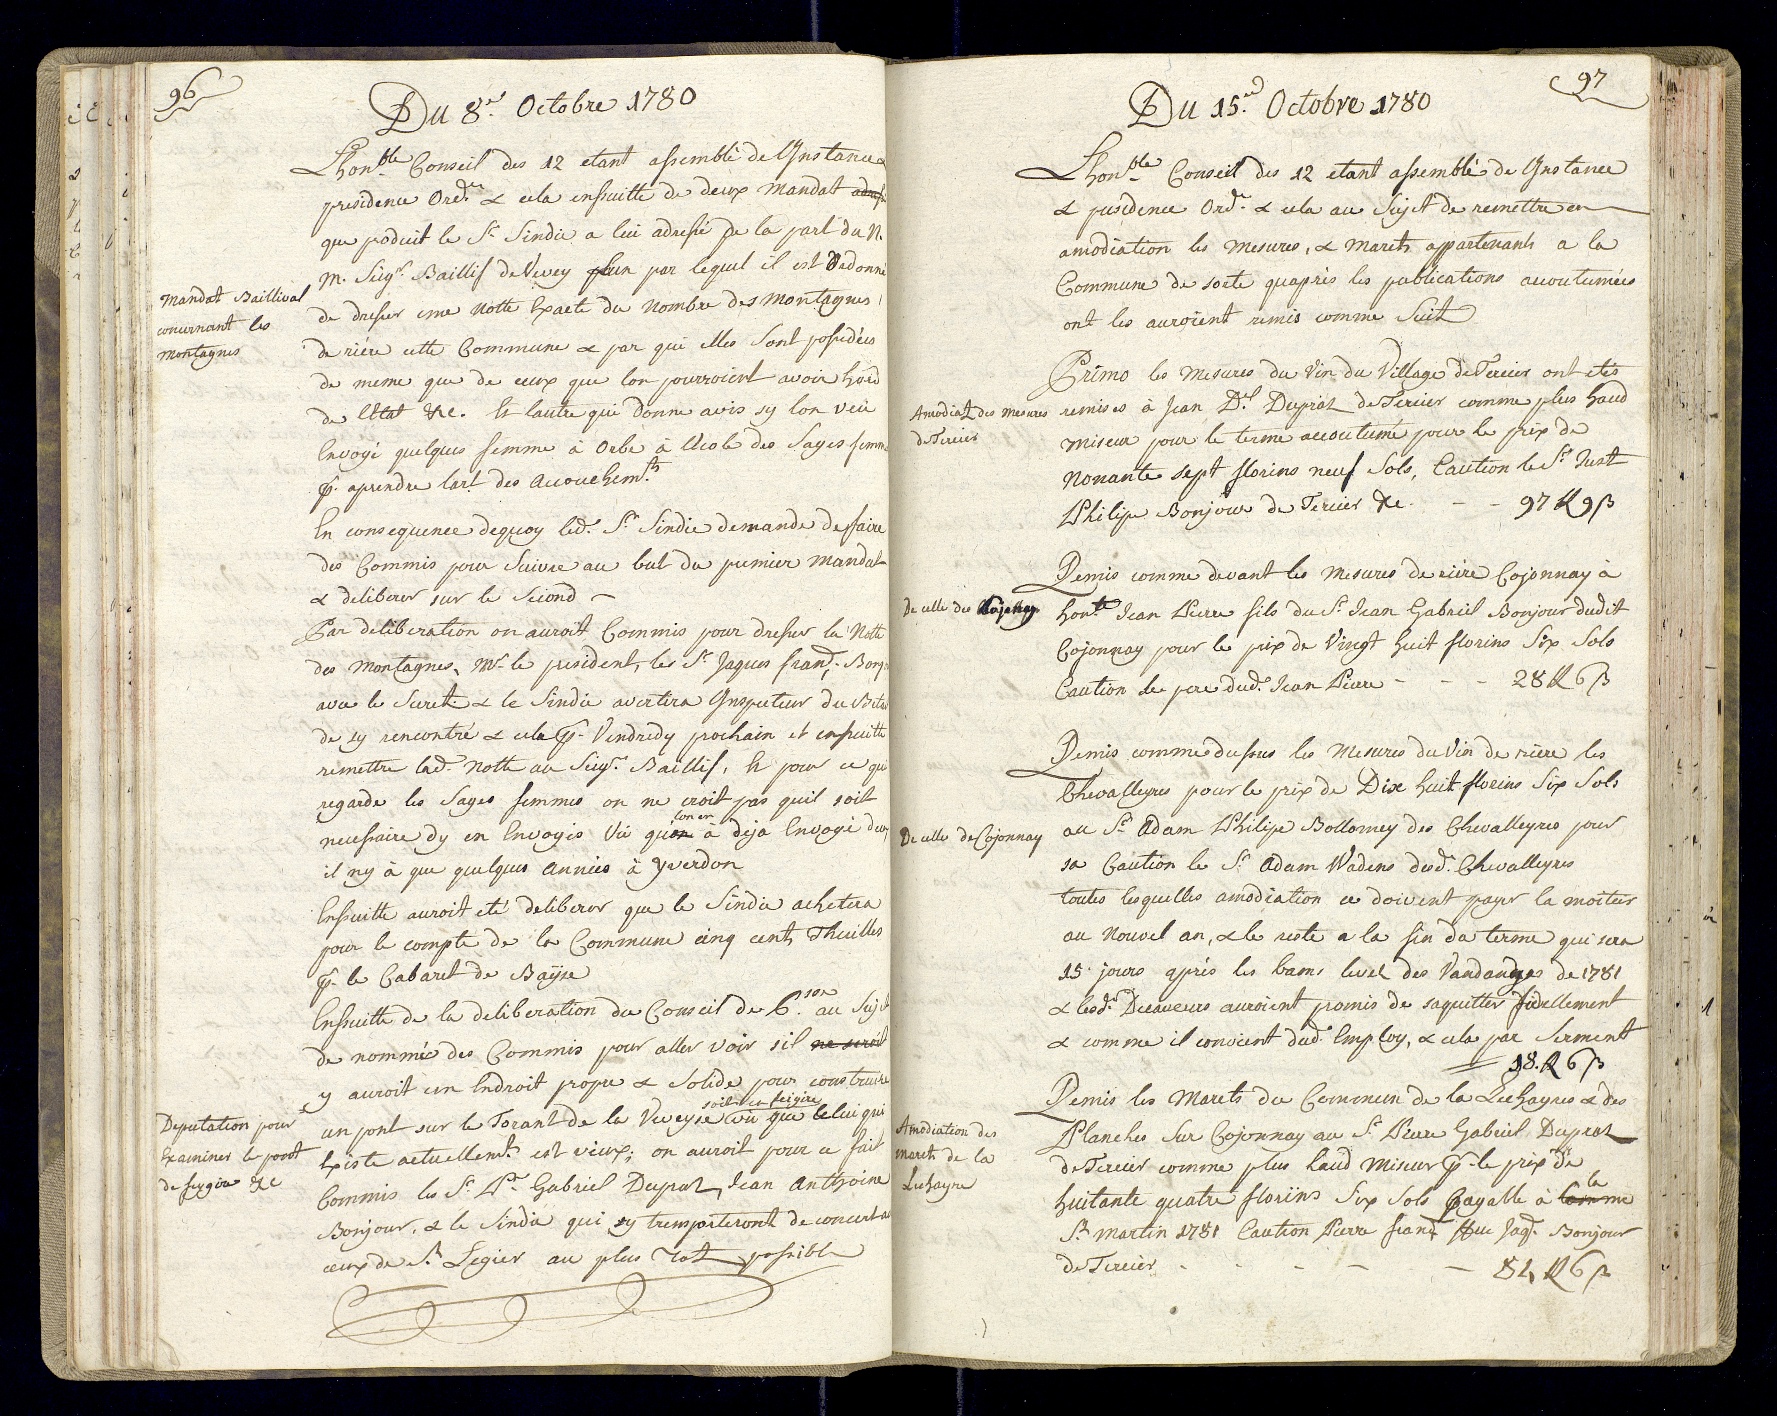 96
Du 8.e Octobre 1780
Lhon.ble Conseil des 12 etant assemblé de l'Instance &
presidence Ord.re & cela ensuitte de deux Mandat
que produit le S.r Sindic a lui adressé pe la part du N.
M. Seig.r Baillif de Vevey lun par lequel il est Ordonné
Mandat Baillival
concernant les
montagnes
de dresser une Notte Exacte du Nombre des Montagnes
de riére cette Commune & par qui elles sont possedées
de meme que de ceux que lon pourroient avoir hord
de l'Etat &c. Et lautre qui donne avis sy lon veu
Envoyé quelques femme à Orbe à l'Ecole des Sages femme
p.r aprendre lart des Accouchem.ts
En consequence dequoy led. S.r Sindic demande de faire
des Commis pour Suivre au but du premier Mandat
& deliberer sur le Second
Par deliberation on auroit Commis pour dresser la Notte
des Montagnes, M.r le president, les S.r Jaques Franç.
avec le Secret. & le Sindic avertira Inspecteur du
de sy rencontré & cela p.r Vendredy prochain et ensuitte
remettre lad. Notte au Seig.r Baillif, Et pour ce qui
regarde les Sages femmes on ne croit pas quil soit
necessaire dy en Envoyés Vû qu lon en à deja Envoyé deux
il ny à que quelques Années à Yverdon
Ensuitte auroit eté deliberer que le Sindic achetera
pour le compte de la Commune cinq cents Thuilles
p.r le Cabaret de Baÿse
Ensuitte de la deliberation du Conseil de B.son au Sujet
de nommée des Commis pour aller voir sil ne seroit
y auroit un Endroit propre & Solide pour construire
Deputation pour
Examiner le pont
de feygire &c
un pont sur le Torant de la Veveyse soit en feigire vû que celui qui
Existe actuellem.t est vieux; on auroit pour ce fait
Commis les S.r P.re Gabriel Dupraz, Jean Anthoine
Bonjour, & le Sindic qui sy tremporteront de concert a
ceux de S.t Legier au plus Tot possible
97
Du 15.e Octobre 1780
Lhon.ble Conseil des 12 etant assemblés de Instance
& presidence Ord.re & cela au Sujet de remettre en
amodiation les Mesures, & Marets appartenants a la
Commune de sorte quaprès les publications accoutumées
ont les auroient remis comme Suit
Primo les Mesures du Vin du Village de Tercier ont etés
Amodiat. des mesures
de Tercier
remises à Jean D.l Dupraz de Tercier comme plus haud
miseur pour le terme accoutumé pour le prix de
Nonante sept florins neuf Sols, Caution le S.r Just
Philipe Bonjour de Tercier &c. - - 97 fl 9 ß
Remis comme devant les Mesures de riére Cojonnay à
De celle de Cojonnay
hon.te Jean Pierre fils du S.r Jean Gabriel Bonjour dudit
Cojonnay pour le prix de Vingt huit florins Six Sols
Caution le pere dud. Jean Pierre - - - 28 fl 6 ß
Remis comme dussus les Mesures du Vin de riére les
Chevalleyres pour le prix de Dix huit florins Six Sols
De celle de Cojonnay
au S.r Adam Philipe Bottomey des Chevalleyres pour
sa Caution le S.r Adam Wadens desd. Chevalleyres
toutes lesquelles amodiation ce doivent payer la moiteir
au Nouvel an, & le reste a la fin du terme qui sera
15 jours après les bams levet des Vandanges de 1781
& lesd. Receveurs auroient promis de saquitter fidellement
& comme il convient dud. Employ, & cela par Serment
18. fl 6 ß
Remis les Marets du Commun de la Lechayres & des
Amodiation des
marets de la
Lechayre
Planches Sur Cojonnay au S.r Pierre Gabriel Dupraz
de Tercier comme plus haud Miseur p.r le prix de
huitante quatre florins Six Sols Payable à la
S.t Martin 1781 Caution Pierre franç. feu Jaq. Bonjour
de Tercier - - - - - 84 fl 6 ß